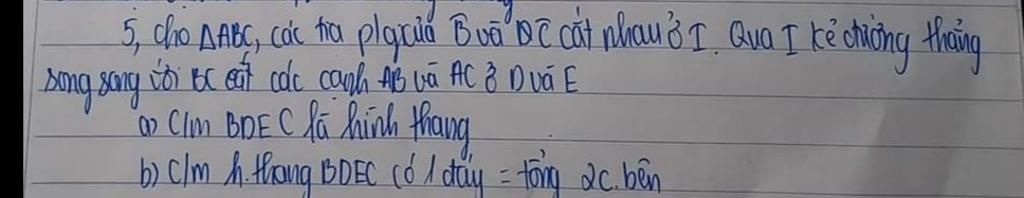 5, cho △ABC, các tia p/g của B̂ và Ĉ cắt nhau ở I. Qua I kẻ đường thẳng
song song với BC cắt các cạnh AB và AC ở D và E
a) C/m BDEC là hình thang
b) C/m h.thang BDEC có 1 đáy = tổng 2c.bên